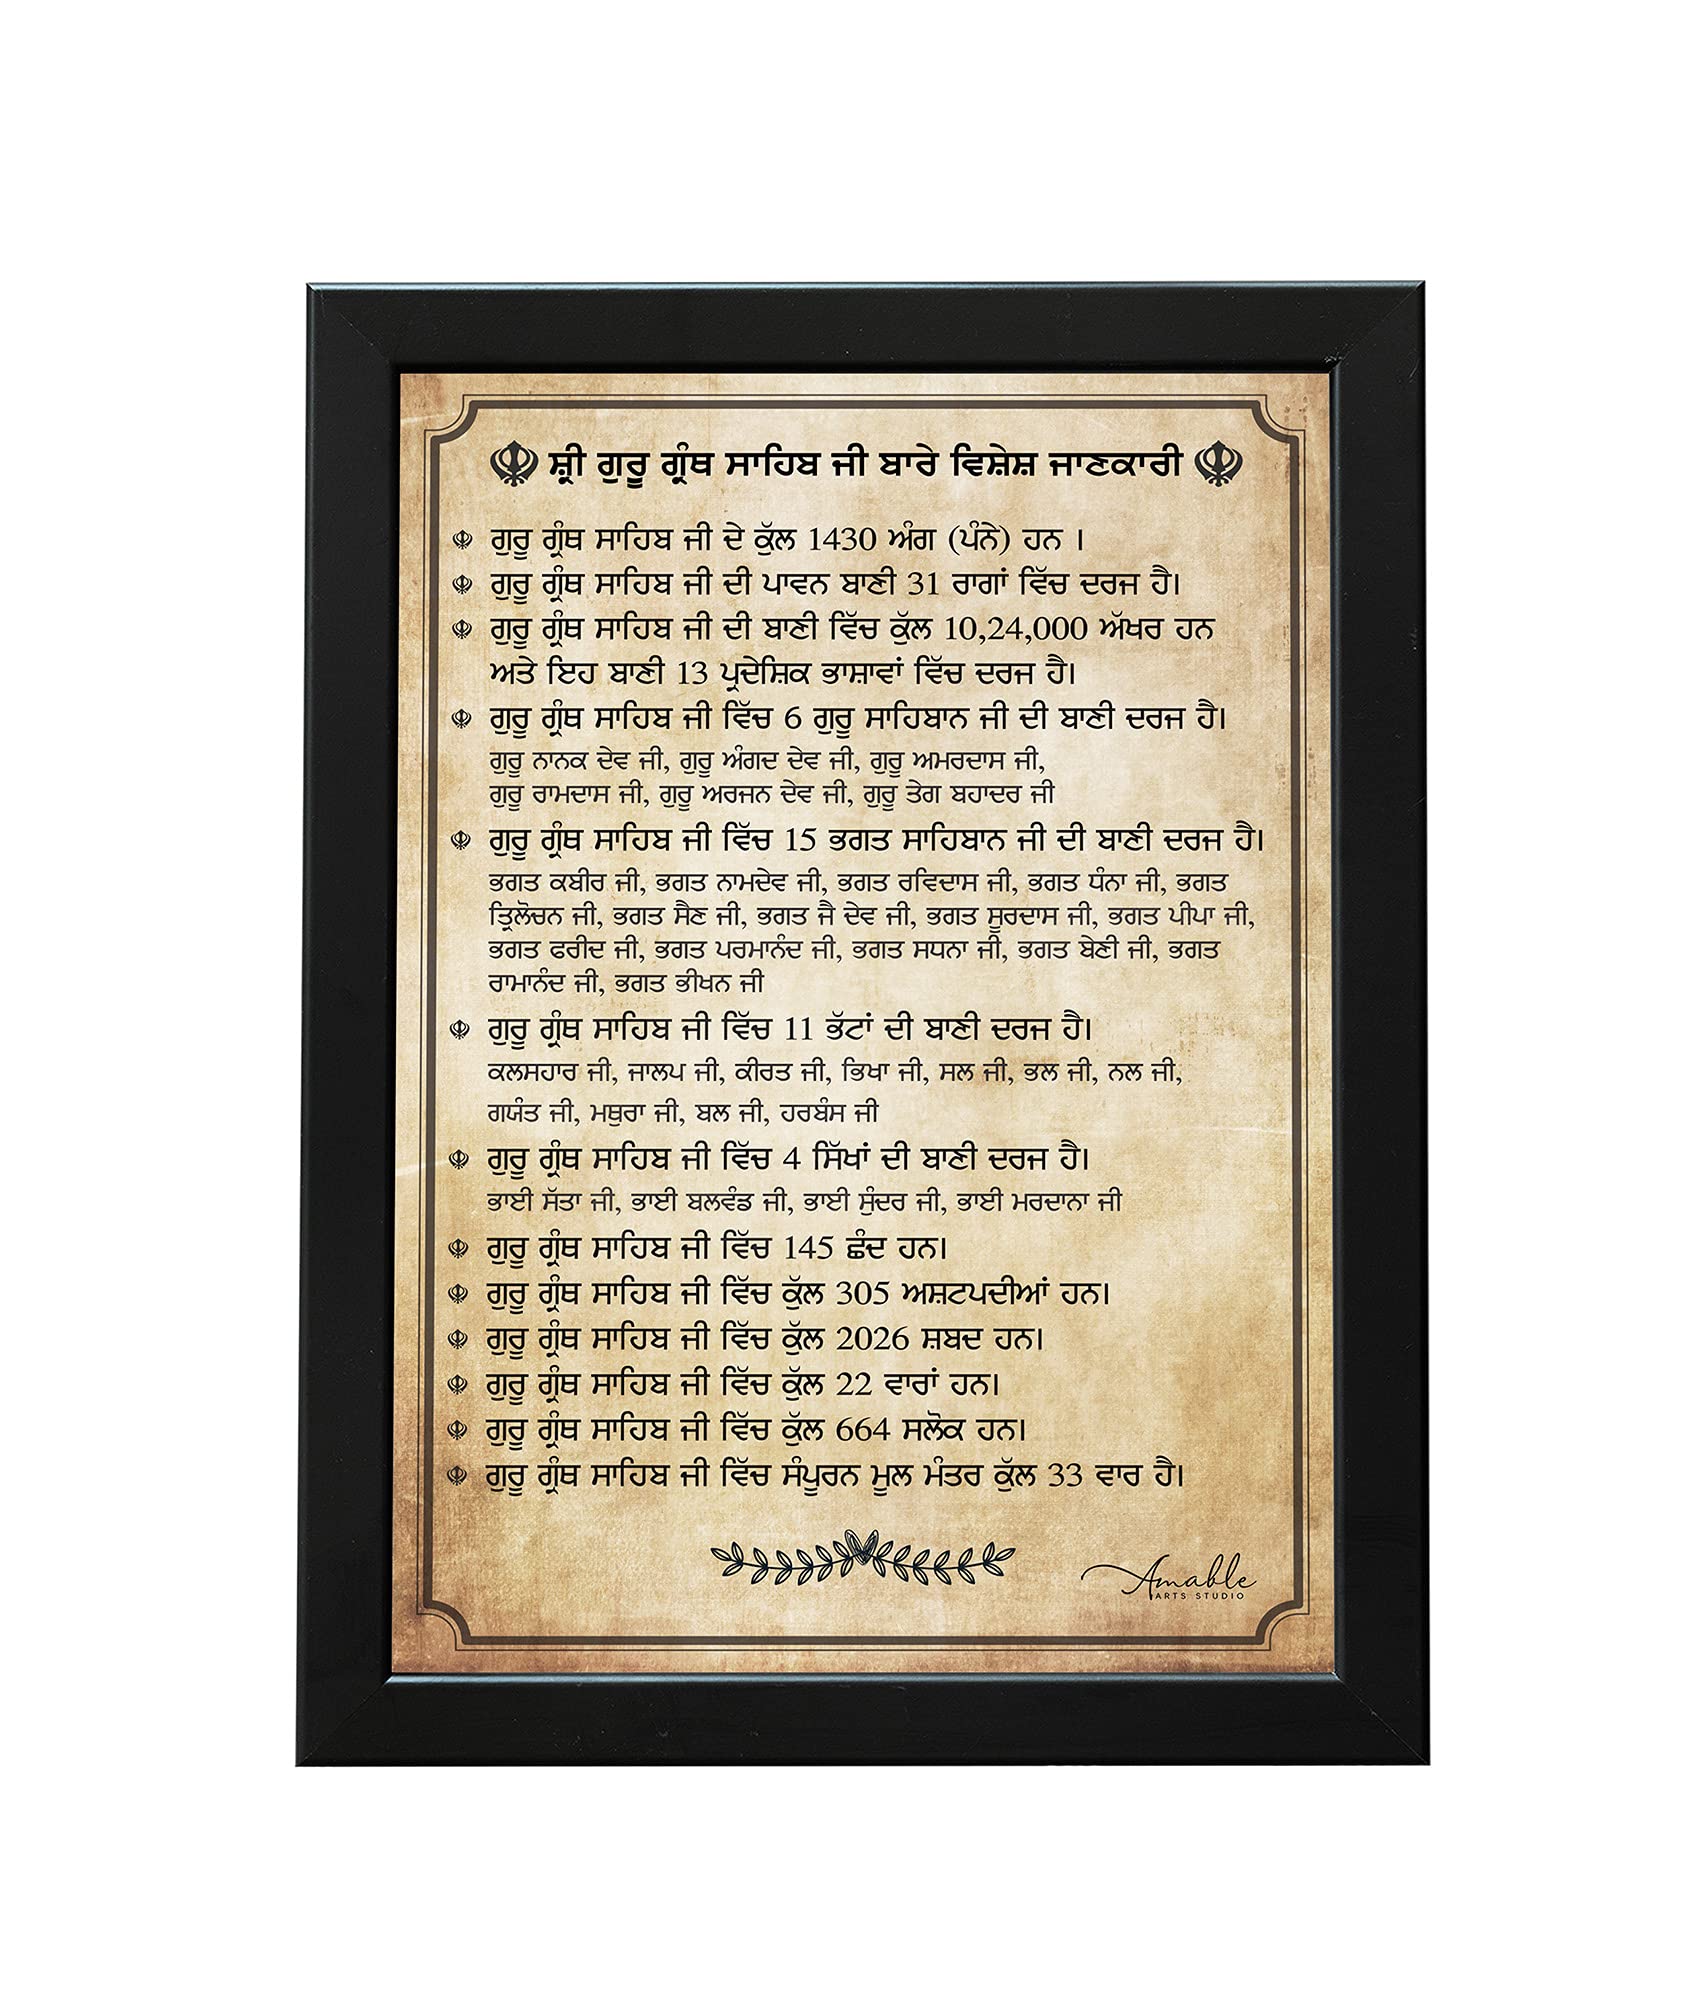 ਸ਼੍ਰੀ ਗੁਰੂ ਗ੍ਰੰਥ ਸਾਹਿਬ ਜੀ ਬਾਰੇ ਵਿਸ਼ੇਸ਼ ਜਾਣਕਾਰੀ
ਗੁਰੂ ਗ੍ਰੰਥ ਸਾਹਿਬ ਜੀ ਦੇ ਕੁੱਲ 1430 ਅੰਗ (ਪੰਨੇ) ਹਨ ।
ਗੁਰੂ ਗ੍ਰੰਥ ਸਾਹਿਬ ਜੀ ਦੀ ਪਾਵਨ ਬਾਣੀ 31 ਰਾਗਾਂ ਵਿੱਚ ਦਰਜ ਹੈ।
ਗੁਰੂ ਗ੍ਰੰਥ ਸਾਹਿਬ ਜੀ ਦੀ ਬਾਣੀ ਵਿੱਚ ਕੁੱਲ 10,24,000 ਅੱਖਰ ਹਨ
ਅਤੇ ਇਹ ਬਾਣੀ 13 ਪ੍ਰਦੇਸ਼ਿਕ ਭਾਸ਼ਾਵਾਂ ਵਿੱਚ ਦਰਜ ਹੈ।
ਗੁਰੂ ਗ੍ਰੰਥ ਸਾਹਿਬ ਜੀ ਵਿੱਚ 6 ਗੁਰੂ ਸਾਹਿਬਾਨ ਜੀ ਦੀ ਬਾਣੀ ਦਰਜ ਹੈ।
ਗੁਰੂ ਨਾਨਕ ਦੇਵ ਜੀ, ਗੁਰੂ ਅੰਗਦ ਦੇਵ ਜੀ, ਗੁਰੂ ਅਮਰਦਾਸ ਜੀ,
ਗੁਰੂ ਰਾਮਦਾਸ ਜੀ, ਗੁਰੂ ਅਰਜਨ ਦੇਵ ਜੀ, ਗੁਰੂ ਤੇਗ ਬਹਾਦਰ ਜੀ
ਗੁਰੂ ਗ੍ਰੰਥ ਸਾਹਿਬ ਜੀ ਵਿੱਚ 15 ਭਗਤ ਸਾਹਿਬਾਨ ਜੀ ਦੀ ਬਾਣੀ ਦਰਜ ਹੈ।
ਭਗਤ ਕਬੀਰ ਜੀ, ਭਗਤ ਨਾਮਦੇਵ ਜੀ, ਭਗਤ ਰਵਿਦਾਸ ਜੀ, ਭਗਤ ਧੰਨਾ ਜੀ, ਭਗਤ
ਤ੍ਰਿਲੋਚਨ ਜੀ, ਭਗਤ ਸੈਣ ਜੀ, ਭਗਤ ਜੈ ਦੇਵ ਜੀ, ਭਗਤ ਸੂਰਦਾਸ ਜੀ, ਭਗਤ ਪੀਪਾ ਜੀ,
ਭਗਤ ਫਰੀਦ ਜੀ, ਭਗਤ ਪਰਮਾਨੰਦ ਜੀ, ਭਗਤ ਸਧਨਾ ਜੀ, ਭਗਤ ਬੇਣੀ ਜੀ, ਭਗਤ
ਰਾਮਾਨੰਦ ਜੀ, ਭਗਤ ਭੀਖਨ ਜੀ
ਗੁਰੂ ਗ੍ਰੰਥ ਸਾਹਿਬ ਜੀ ਵਿੱਚ 11 ਭੱਟਾਂ ਦੀ ਬਾਣੀ ਦਰਜ ਹੈ।
ਕਲਸਹਾਰ ਜੀ, ਜਾਲਪ ਜੀ, ਕੀਰਤ ਜੀ, ਭਿਖਾ ਜੀ, ਸਲ ਜੀ, ਭਲ ਜੀ, ਨਲ ਜੀ,
ਗਯੰਤ ਜੀ, ਮਥੁਰਾ ਜੀ, ਬਲ ਜੀ, ਹਰਬੰਸ ਜੀ
ਗੁਰੂ ਗ੍ਰੰਥ ਸਾਹਿਬ ਜੀ ਵਿੱਚ 4 ਸਿੱਖਾਂ ਦੀ ਬਾਣੀ ਦਰਜ ਹੈ।
ਭਾਈ ਸੱਤਾ ਜੀ, ਭਾਈ ਬਲਵੰਡ ਜੀ, ਭਾਈ ਸੁੰਦਰ ਜੀ, ਭਾਈ ਮਰਦਾਨਾ ਜੀ
ਗੁਰੂ ਗ੍ਰੰਥ ਸਾਹਿਬ ਜੀ ਵਿੱਚ 145 ਛੰਦ ਹਨ।
ਗੁਰੂ ਗ੍ਰੰਥ ਸਾਹਿਬ ਜੀ ਵਿੱਚ ਕੁੱਲ 305 ਅਸ਼ਟਪਦੀਆਂ ਹਨ।
ਗੁਰੂ ਗ੍ਰੰਥ ਸਾਹਿਬ ਜੀ ਵਿੱਚ ਕੁੱਲ 2026 ਸ਼ਬਦ ਹਨ।
ਗੁਰੂ ਗ੍ਰੰਥ ਸਾਹਿਬ ਜੀ ਵਿੱਚ ਕੁੱਲ 22 ਵਾਰਾਂ ਹਨ।
ਗੁਰੂ ਗ੍ਰੰਥ ਸਾਹਿਬ ਜੀ ਵਿੱਚ ਕੁੱਲ 664 ਸਲੋਕ ਹਨ।
ਗੁਰੂ ਗ੍ਰੰਥ ਸਾਹਿਬ ਜੀ ਵਿੱਚ ਸੰਪੂਰਨ ਮੂਲ ਮੰਤਰ ਕੁੱਲ 33 ਵਾਰ ਹੈ।
Amable
ARTS STUDIO